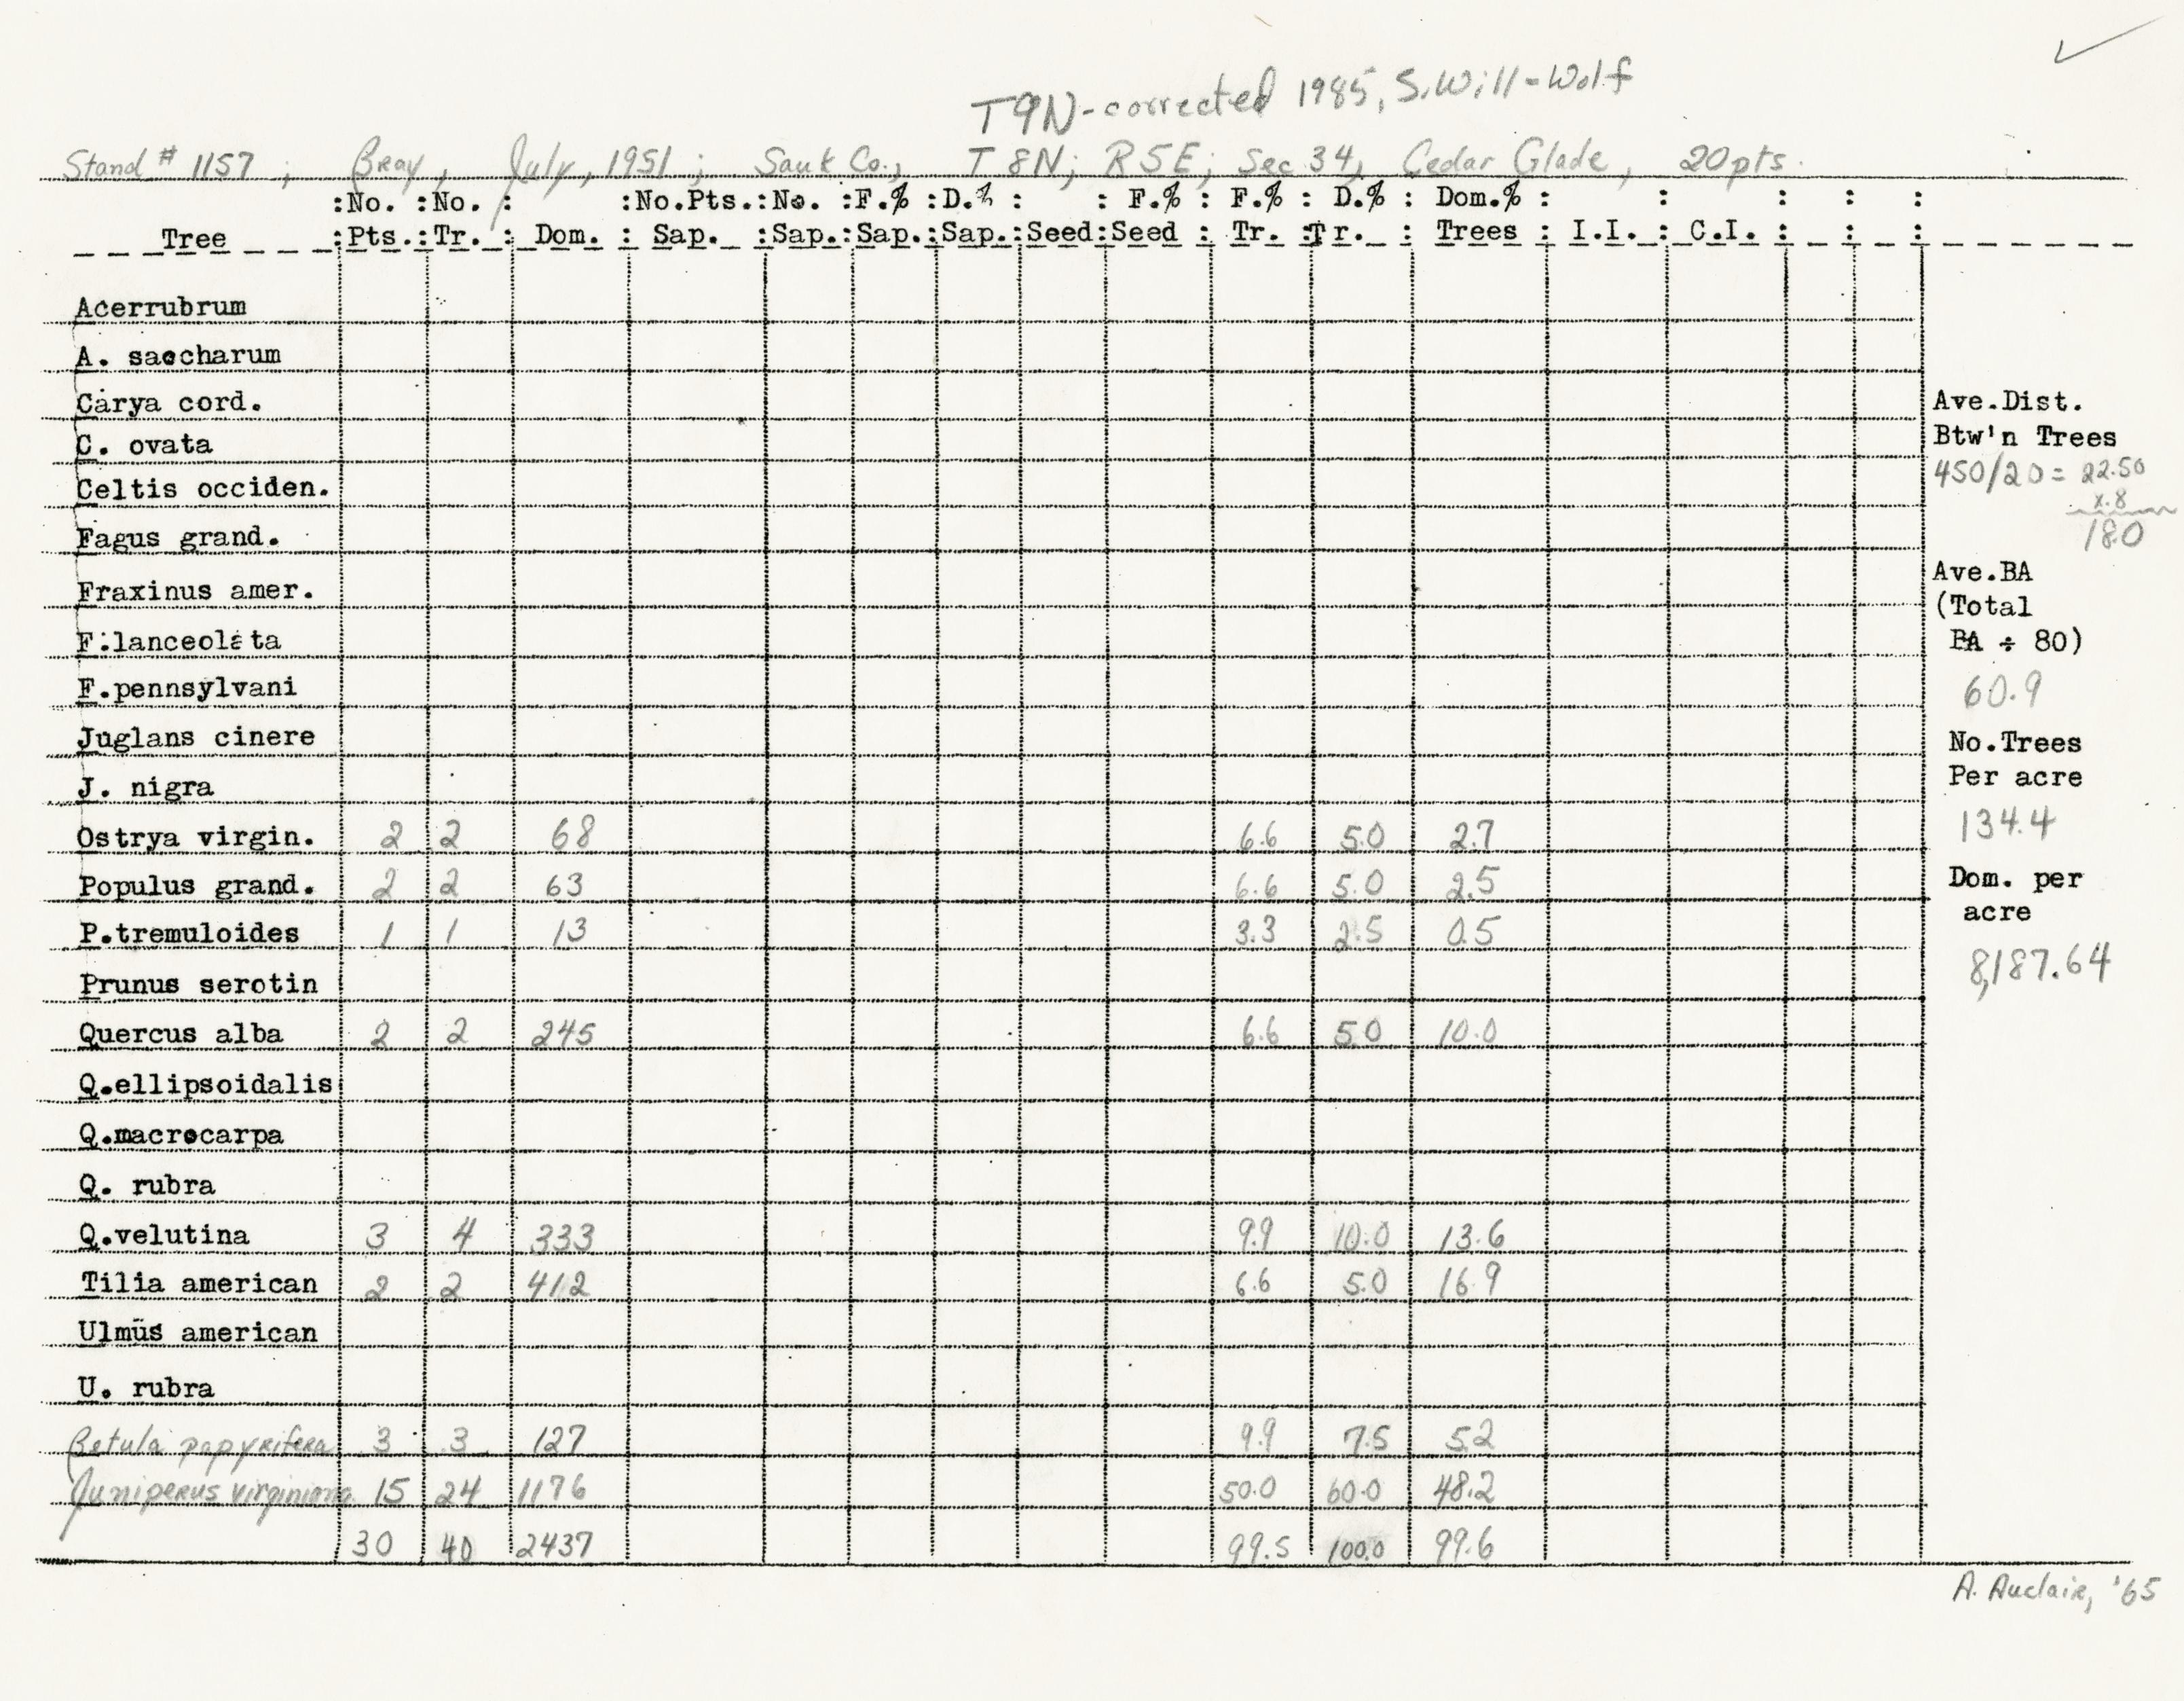 T9N-corrected 1985, S. Will-Wolf
Stand # 1157 ; Bray, July, 1951 ; Sauk Co., T 8N; R5E; Sec 34, Cedar Glade, 20 pts.
:No. :No. : :No.Pts.:No. :F.% :D.% : : F.% : F.% : D.% : Dom.% : : : : :
Tree :Pts.:Tr. : Dom. : Sap. :Sap.:Sap.:Sap.:Seed:Seed : Tr. :Tr. : Trees : I.I. : C.I. : : :
Acerrubrum
A. saccharum
Carya cord.
C. ovata
Celtis occiden.
Fagus grand.
Fraxinus amer.
F.lanceolata
F.pennsylvani
Juglans cinere
J. nigra
Ostrya virgin. 2 2 68 6.6 5.0 2.7
Populus grand. 2 2 63 6.6 5.0 2.5
P.tremuloides 1 1 13 3.3 2.5 0.5
Prunus serotin
Quercus alba 2 2 245 6.6 5.0 10.0
Q.ellipsoidalis
Q.macrocarpa
Q. rubra
Q.velutina 3 4 333 9.9 10.0 13.6
Tilia american 2 2 412 6.6 5.0 16.9
Ulmus american
U. rubra
Betula papyrifera 3 3 127 9.9 7.5 5.2
Juniperus virginiana 15 24 1176 50.0 60.0 48.2
30 40 2437 99.5 100.0 99.6
Ave.Dist.
Btw'n Trees
450/20 = 22.50
x.8
18.0
Ave.BA
(Total
BA ÷ 80)
60.9
No.Trees
Per acre
134.4
Dom. per
acre
8,187.64
A. Auclair, '65